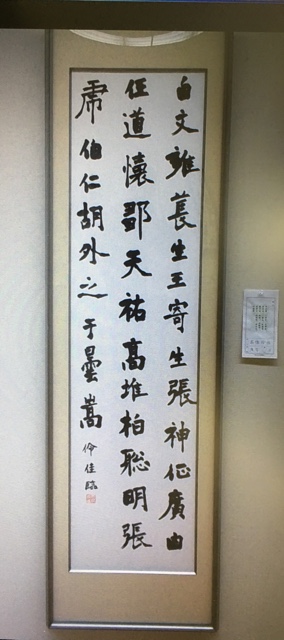 白文雍萇生王寄生張神廣由
任道懷天祐高堆柏聰明張
席伯仁胡外之于曇嵩伶佳臨